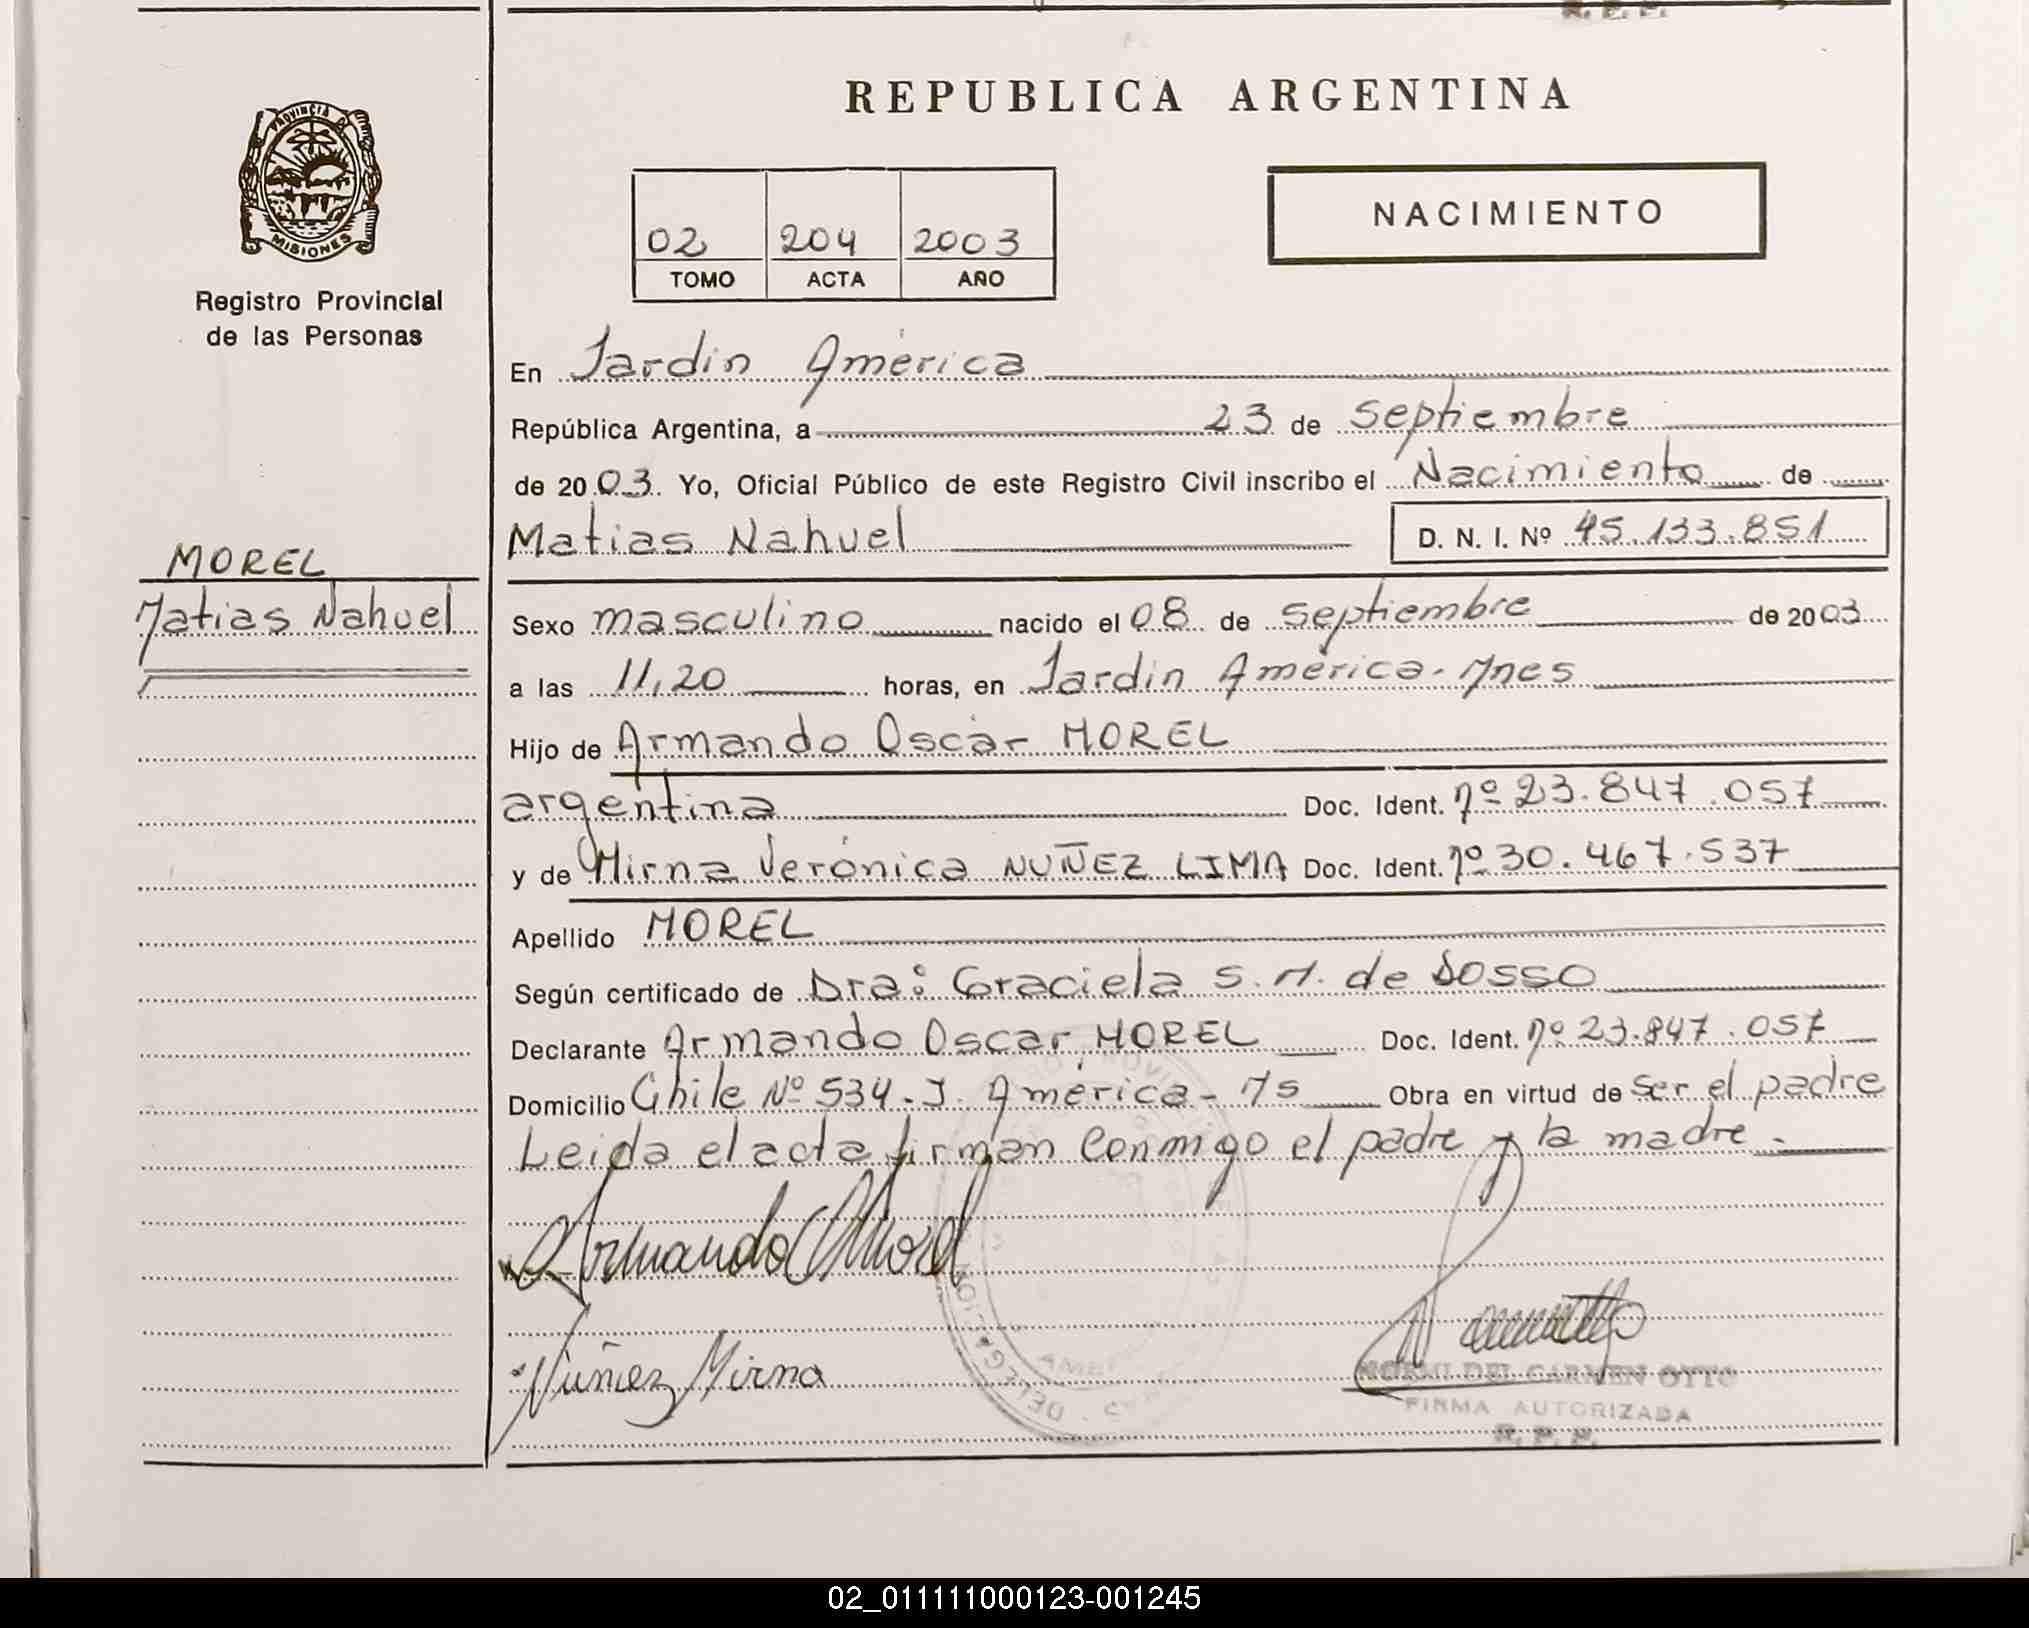 R. E. P.
REPUBLICA ARGENTINA
PROVINCIA DE
MISIONES
Registro Provincial
de las Personas
02 204 2003
TOMO ACTA AÑO
NACIMIENTO
En Jardin América
República Argentina, a 23 de septiembre
de 2003. Yo, Oficial Público de este Registro Civil inscribo el Nacimiento de
Matias Nahuel D. N. I. Nº 45.133.851
MOREL
Matias Nahuel
Sexo masculino nacido el 08 de septiembre de 2003
a las 11,20 horas, en Jardin América. Mnes
Hijo de Armando Oscar MOREL
argentina Doc. Ident. nº 23.847.057
y de Mirna Verónica NUÑEZ LIMA Doc. Ident. nº 30.467.537
Apellido MOREL
Según certificado de Dra: Graciela S. M. de DOSSO
Declarante Armando Oscar MOREL Doc. Ident. nº 23.847.057
Domicilio Chile Nº 534. J. América - Ms Obra en virtud de ser el padre
Leida el acta firman conmigo el padre y la madre.
Armando O Morel
Nuñez Mirna
DEL CARMEN OTTO
FIRMA AUTORIZADA
R. P. P.
02_011111000123-001245